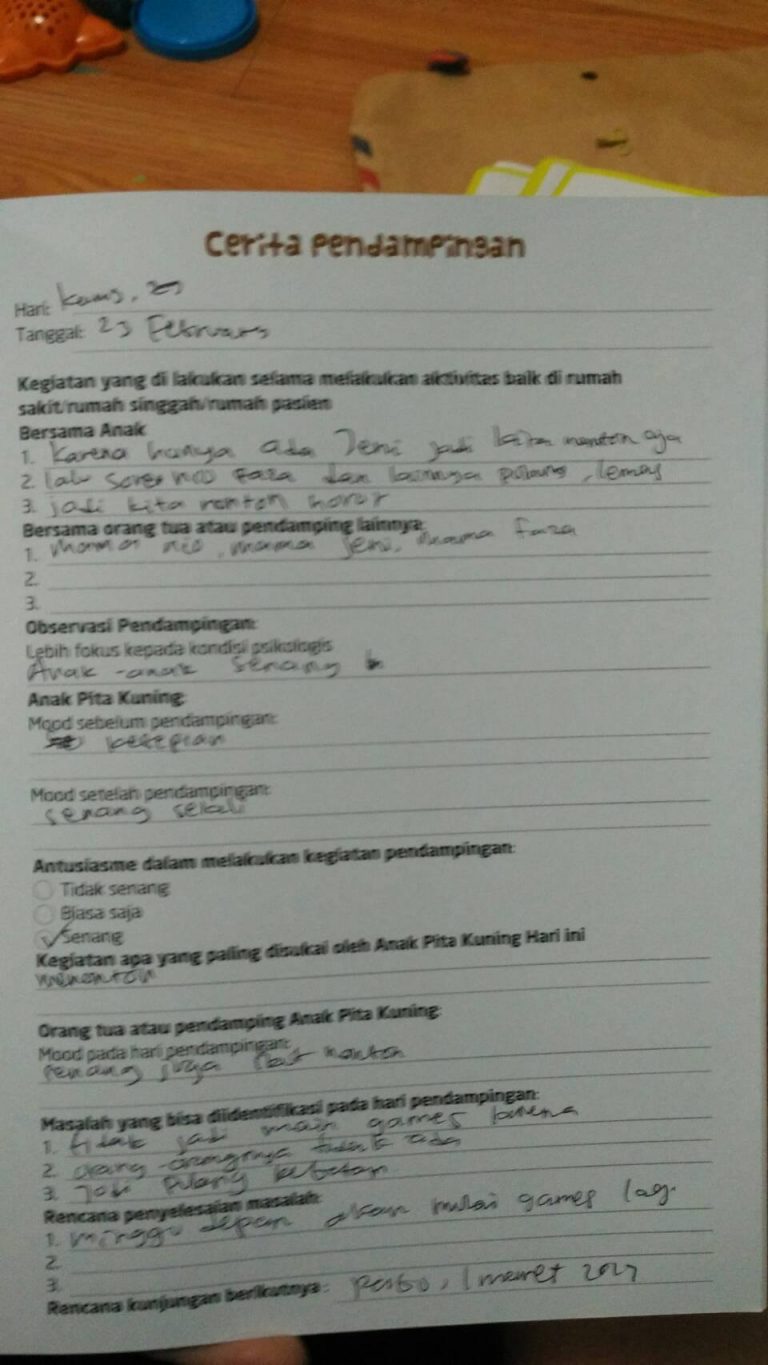 Cerita Pendampingan
Hari: Kamis, 23
Tanggal: 23 Februari
Kegiatan yang di lakukan selama melakukan aktivitas baik di rumah
sakit/rumah singgah/rumah pasien
Bersama Anak
1. Karena hanya ada Jeni jadi kita nonton aja
2. lalu sore nio Faza dan lainnya pulang, lemas
3. jadi kita nonton horor
Bersama orang tua atau pendamping lainnya:
1. Mama nio, mama Jeni, mama faza
2.
3.
Observasi Pendampingan:
Lebih fokus kepada kondisi psikologis
Anak-anak senang
Anak Pita Kuning:
Mood sebelum pendampingan:
kesepian
Mood setelah pendampingan:
senang sekali
Antusiasme dalam melakukan kegiatan pendampingan:
Tidak senang
Biasa saja
Senang
Kegiatan apa yang paling disukai oleh Anak Pita Kuning Hari ini
menonton
Orang tua atau pendamping Anak Pita Kuning:
Mood pada hari pendampingan:
senang juga nonton
Masalah yang bisa diidentifikasi pada hari pendampingan:
1. tidak jadi main games karena
2. orang-orangnya tidak ada
3. pulang
Rencana penyelesaian masalah:
1. minggu depan akan mulai games lagi
2.
3.
Rencana kunjungan berikutnya: Rabo, 1 maret 2017